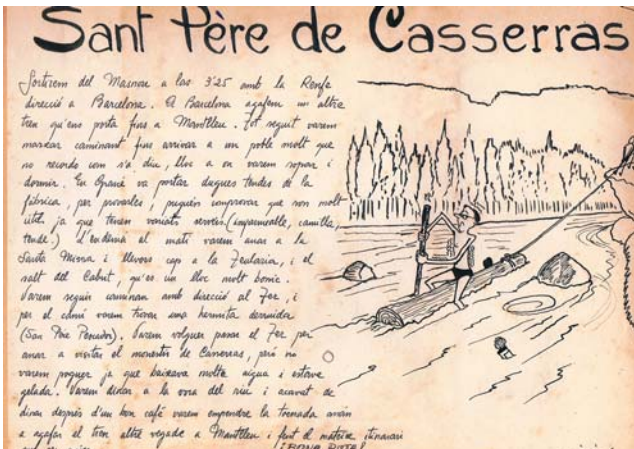 Sant Père de Casserras
Sortirem del Masnou a las 3'25 amb la Renfe
direcció a Barcelona. A Barcelona agafem un altre
tren qu'ens porta fins a Mantlleu. Tot seguit varem
marxar caminant fins arrivar a un poble molt que
no recordo com s'a diu, lloc a on varem sopar i
dormir. En Granè va portar dugues tendes de la
fàbrica, per provarles, puguen comprovar que son molt
utils ja que tenen variats serveis (impermeable, camilla,
tenda.) d'endema el mati varem anar a la
Santa Missa i llevors cap a la i el
salt del Cabrit, qu'es un lloc molt bonic.
Varem seguir caminan amb direcció al Ter, i
per el camí varem trovar una hermita derruida
(San Pere Pescador). Varem volguer pasar el Ter per
anar a visitar el monestir de Casserras, però no
varem poguer ja que baixava molta aigua i estava
gelada. Varem dinar a la vora del riu i acavat de
dinar després d'un bon café varem empendre la tornada
a agafar el tren altre vegade a Mantlleu i fent el mateix itinerari
¡BONA RUTA!